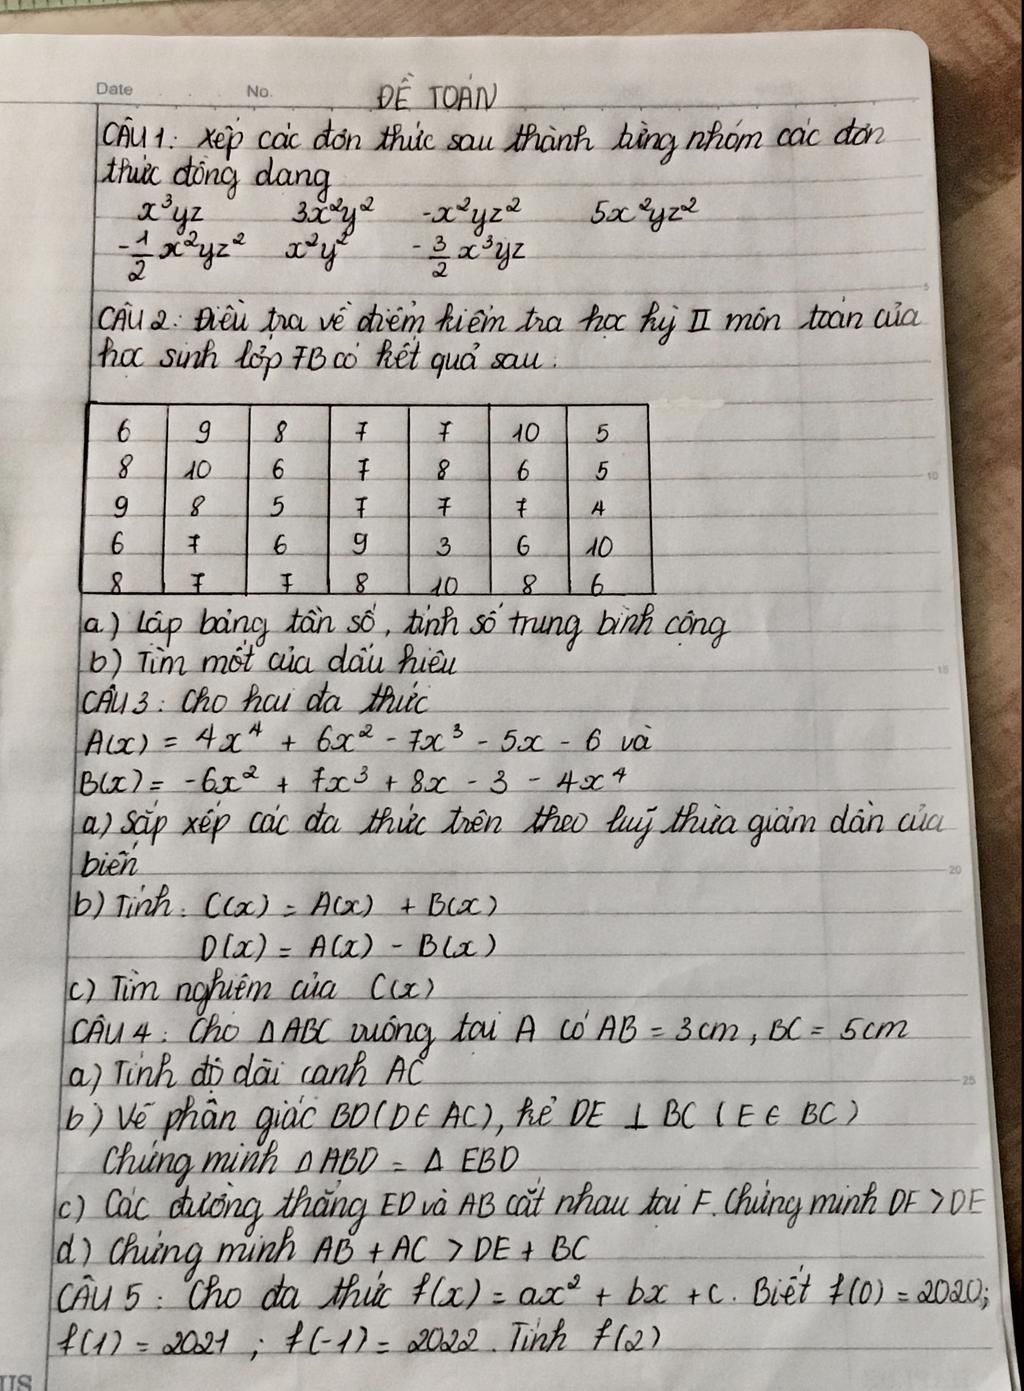 Date No. ĐỀ TOÁN
CÂU 1: Xếp các đơn thức sau thành từng nhóm các đơn
thức đồng dạng
x³yz 3x²y² -x²yz² 5x²yz²
-1/2 x²yz² x²y² -3/2 x³yz
CÂU 2: Điều tra về điểm kiểm tra học kỳ II môn toán của
học sinh lớp 7B có kết quả sau:
6 9 8 7 7 10 5
8 10 6 7 8 6 5
9 8 5 7 7 7 4
6 7 6 9 3 6 10
8 7 7 8 10 8 6
a) Lập bảng tần số, tính số trung bình cộng
b) Tìm mốt của dấu hiệu
CÂU 3: Cho hai đa thức
A(x) = 4x⁴ + 6x² - 7x³ - 5x - 6 và
B(x) = -6x² + 7x³ + 8x - 3 - 4x⁴
a) Sắp xếp các đa thức trên theo luỹ thừa giảm dần của
biến
b) Tính: C(x) = A(x) + B(x)
D(x) = A(x) - B(x)
c) Tìm nghiệm của C(x)
CÂU 4: Cho △ABC vuông tại A có AB = 3cm, BC = 5cm
a) Tính độ dài cạnh AC
b) Vẽ phân giác BD (D ∈ AC), kẻ DE ⊥ BC (E ∈ BC)
Chứng minh △ABD = △ EBD
c) Các đường thẳng ED và AB cắt nhau tại F. Chứng minh DF > DE
d) Chứng minh AB + AC > DE + BC
CÂU 5: Cho đa thức f(x) = ax² + bx + c. Biết f(0) = 2020;
f(1) = 2021 ; f(-1) = 2022. Tính f(2)
5
10
15
20
25
US